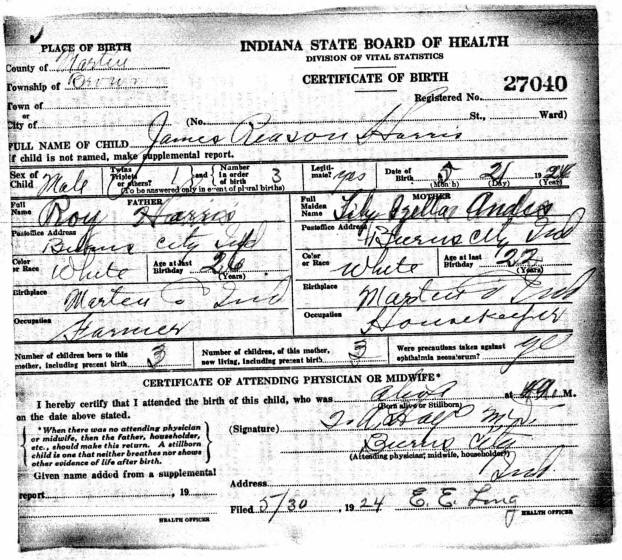 PLACE OF BIRTH
INDIANA STATE BOARD OF HEALTH
DIVISION OF VITAL STATISTICS
County of Marten
CERTIFICATE OF BIRTH
27040
Township of Brown
Registered No.
Town of
or
City of (No. St., Ward)
FULL NAME OF CHILD James Reason Harris
If child is not named, make supplemental report.
Sex of Child Male Twins Triplets or others? 1 Number in order of birth 3 Legiti-mate? yes Date of Birth 5 21 19
(To be answered only in event of plural births) (Month) (Day) (Year)
FATHER MOTHER
Full Name Roy Harris Full Maiden Name Lily Ozella Andis
Postoffice Address Burns City Ind Postoffice Address Burns City Ind
Color or Race White Age at last Birthday 26 (Years) Color or Race White Age at last Birthday 22 (Years)
Birthplace Marten Co Ind Birthplace Martin Co Ind
Occupation Farmer Occupation Housekeeper
Number of children born to this mother, including present birth 3 Number of children, of this mother, now living, including present birth 3 Were precautions taken against ophthalmia neonatorum?
CERTIFICATE OF ATTENDING PHYSICIAN OR MIDWIFE*
I hereby certify that I attended the birth of this child, who was alive at M.
(Born alive or Stillborn)
on the date above stated.
* When there was no attending physician
or midwife, then the father, householder,
etc., should make this return. A stillborn
child is one that neither breathes nor shows
other evidence of life after birth.
(Signature)
Burns City
(Attending physician, midwife, householder)
Ind
Given name added from a supplemental
report , 19
Address
Filed 5/30, 1924 E. E. Long
HEALTH OFFICER HEALTH OFFICER